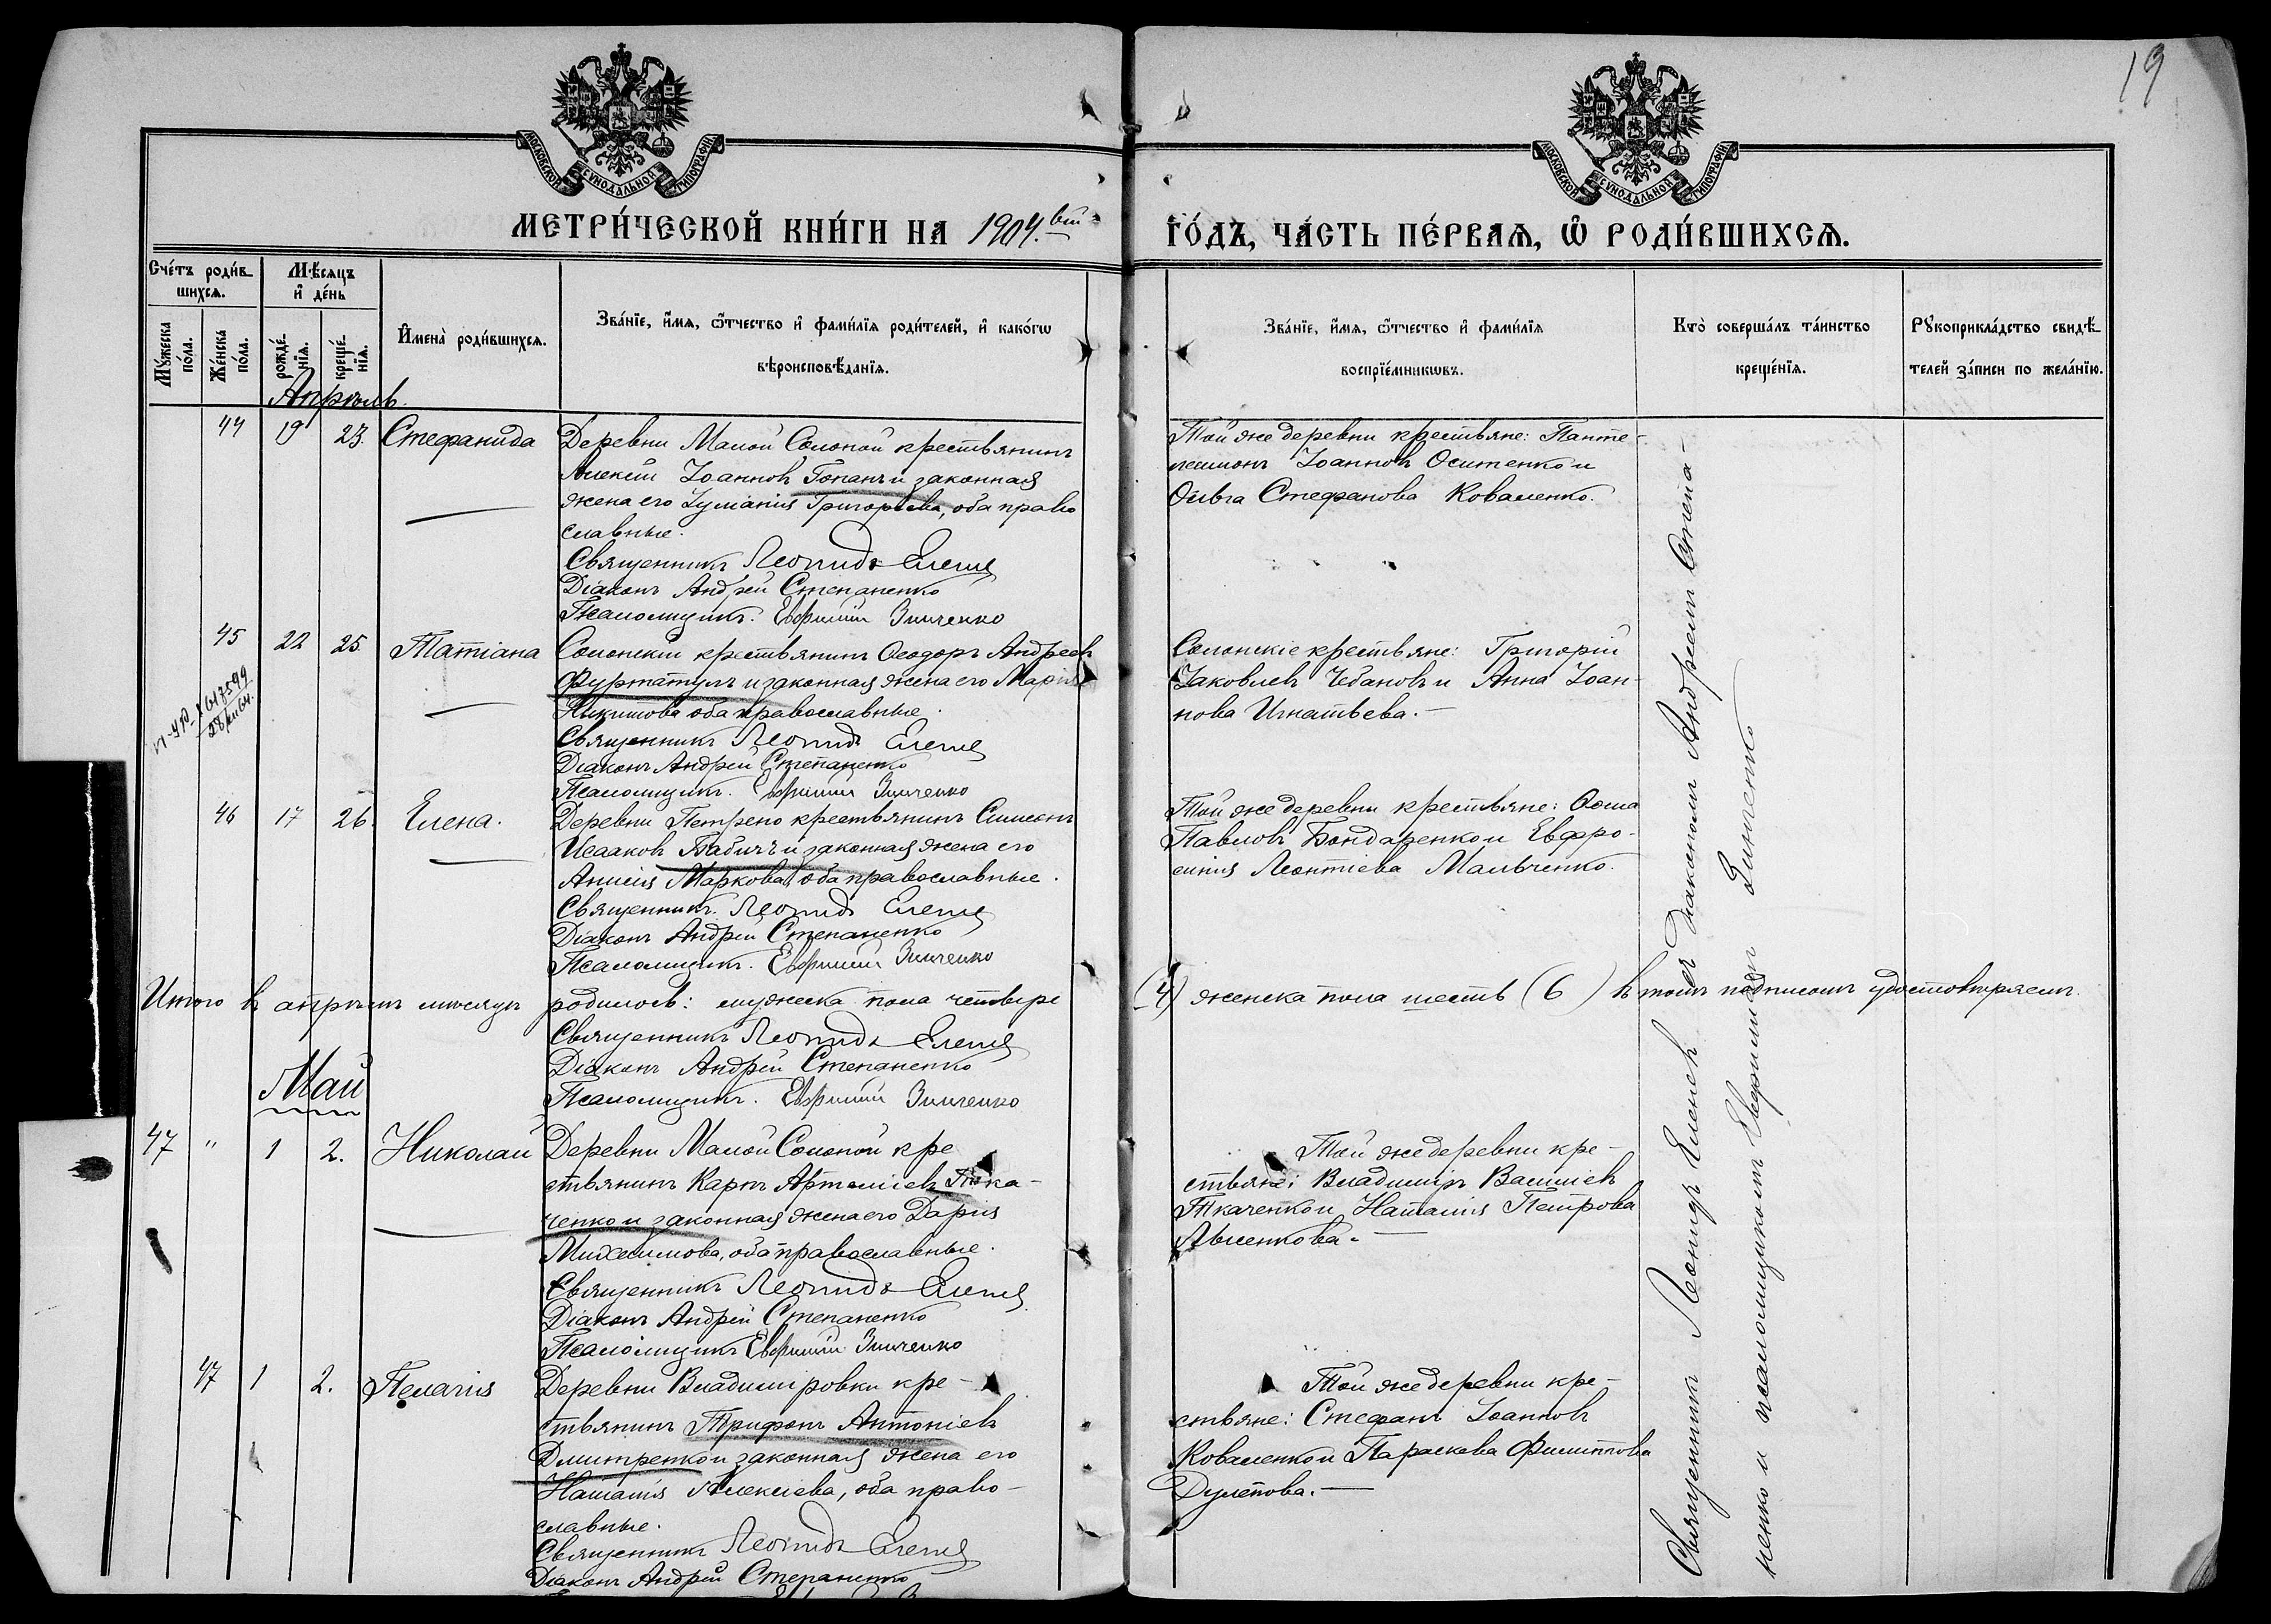 19
МОСКОВСКОЙ СУНОДАЛЬНОЙ ТИПОГРАФІИ
МОСКОВСКОЙ СУНОДАЛЬНОЙ ТИПОГРАФІИ
МЕТРИ́ЧЕСКОЙ КНИ́ГИ НА 1904.
ГО́ДЪ, ЧА́СТЬ ПЕ́РВАѦ, Ѡ҆ РОДИ́ВШИХСѦ.
Сче́тъ роди́в-
шихсѧ.
Мѣ́сѧцъ
и҆ де́нь
Мꙋ́жеска
по́ла.
Же́нска
по́ла.
рожде́-
нїѧ.
креще́-
нїѧ.
И҆мена̀ роди́вшихсѧ.
Зва́нїе, и҆́мѧ, ѻ҆́тчество и҆ фами́лїѧ роди́телей, и҆ како́гѡ
вѣроисповѣ́данїѧ.
Зва́нїе, и҆́мѧ, ѻ҆́тчество и҆ фами́лїѧ
воспрїе́мникѡвъ.
Кто̀ соверша́лъ та́инство
креще́нїѧ.
Рꙋкоприкла́дство свидѣ́-
телей за́писи по жела́нїю.
Апрѣль.
44 19 23. Стефанида
Деревни Малой Солоной крестьянинъ
Алексій Іоанновъ Гопанъ и законная
жена его Іуліанія Григорьева, оба право
славные.
Священникъ Леонидъ Еленев
Діаконъ Андрей Степаненко
Псаломщикъ. Евфимій Зинченко
Той же деревни крестьяне: Панте-
леимонъ Іоанновъ Оситенко и
Ольга Стефанова Коваленко.
45 22 25. Татіана
Солонскій крестьянинъ Ѳеодоръ Андреевъ
Фуртатулъ и законная жена его Марія
Никитова оба православные.
Священникъ Леонидъ Еленев
Діаконъ Андрей Степаненко
Псаломщикъ. Евфимій Зинченко
Солонскіе крестьяне: Григорій
Іаковлевъ Чебановъ и Анна Іоан-
нова Игнатьева.
617599
46 17 26. Елена.
Деревни Петрено крестьянинъ Симеонъ
Исааковъ Бабичъ и законная жена его
Анисія Маркова, оба православные.
Священникъ. Леонидъ Еленев
Діаконъ Андрей Степаненко
Псаломщикъ. Евфимій Зинченко
Той же деревни крестьяне: Ѳома
Павловъ Бондаренко и Евфро-
синія Леонтіева Мальченко.
Итого въ апрѣлѣ мѣсяцѣ родилось: мужеска пола четыре
(4) женска пола шесть (6) въ томъ подписомъ удостовѣряемъ.
Священникъ Леонидъ Еленев
Діаконъ Андрей Степаненко
Псаломщикъ. Евфимій Зинченко
Май
47 " 1 2. Николай
Деревни Малой Солоной кре
стьянинъ Карпъ Артеміевъ Тка-
ченко и законная жена его Дарія
Михаилова, оба православные.
Священникъ Леонидъ Еленев
Діаконъ Андрей Степаненко
Псаломщикъ Евфимій Зинченко
Той же деревни кре-
стьяне: Владиміръ Василіевъ
Ткаченко и Наталія Петрова
Лысенкова.
47 1 2. Пелагія
Деревни Владиміровки кре-
стьянинъ Трифонъ Антоніевъ
Дмитренко и законная жена его
Наталія Алексіева, оба право-
славные.
Священникъ Леонидъ Еленев
Діаконъ Андрей Степаненко
Той же деревни кре-
стьяне: Стефанъ Іоанновъ
Коваленко и Параскева Филиппова
Дулепова.
Священникъ Леонидъ Еленевъ съ діакономъ Андреемъ Степа-
ненко и псаломщикомъ Евфиміемъ Зинченко